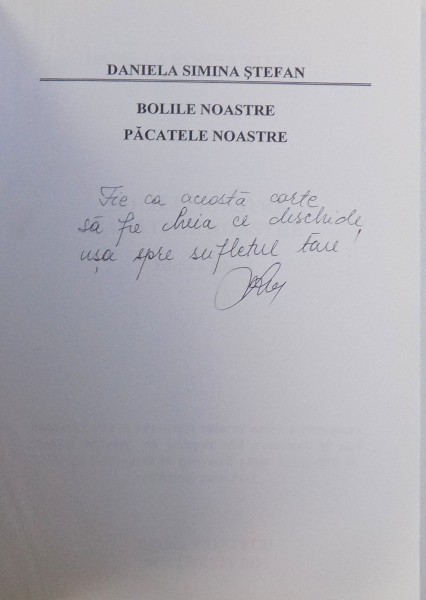 DANIELA SIMINA ȘTEFAN
BOLILE NOASTRE
PĂCATELE NOASTRE
Fie ca această carte
să fie cheia ce deschide
ușa spre sufletul tău!